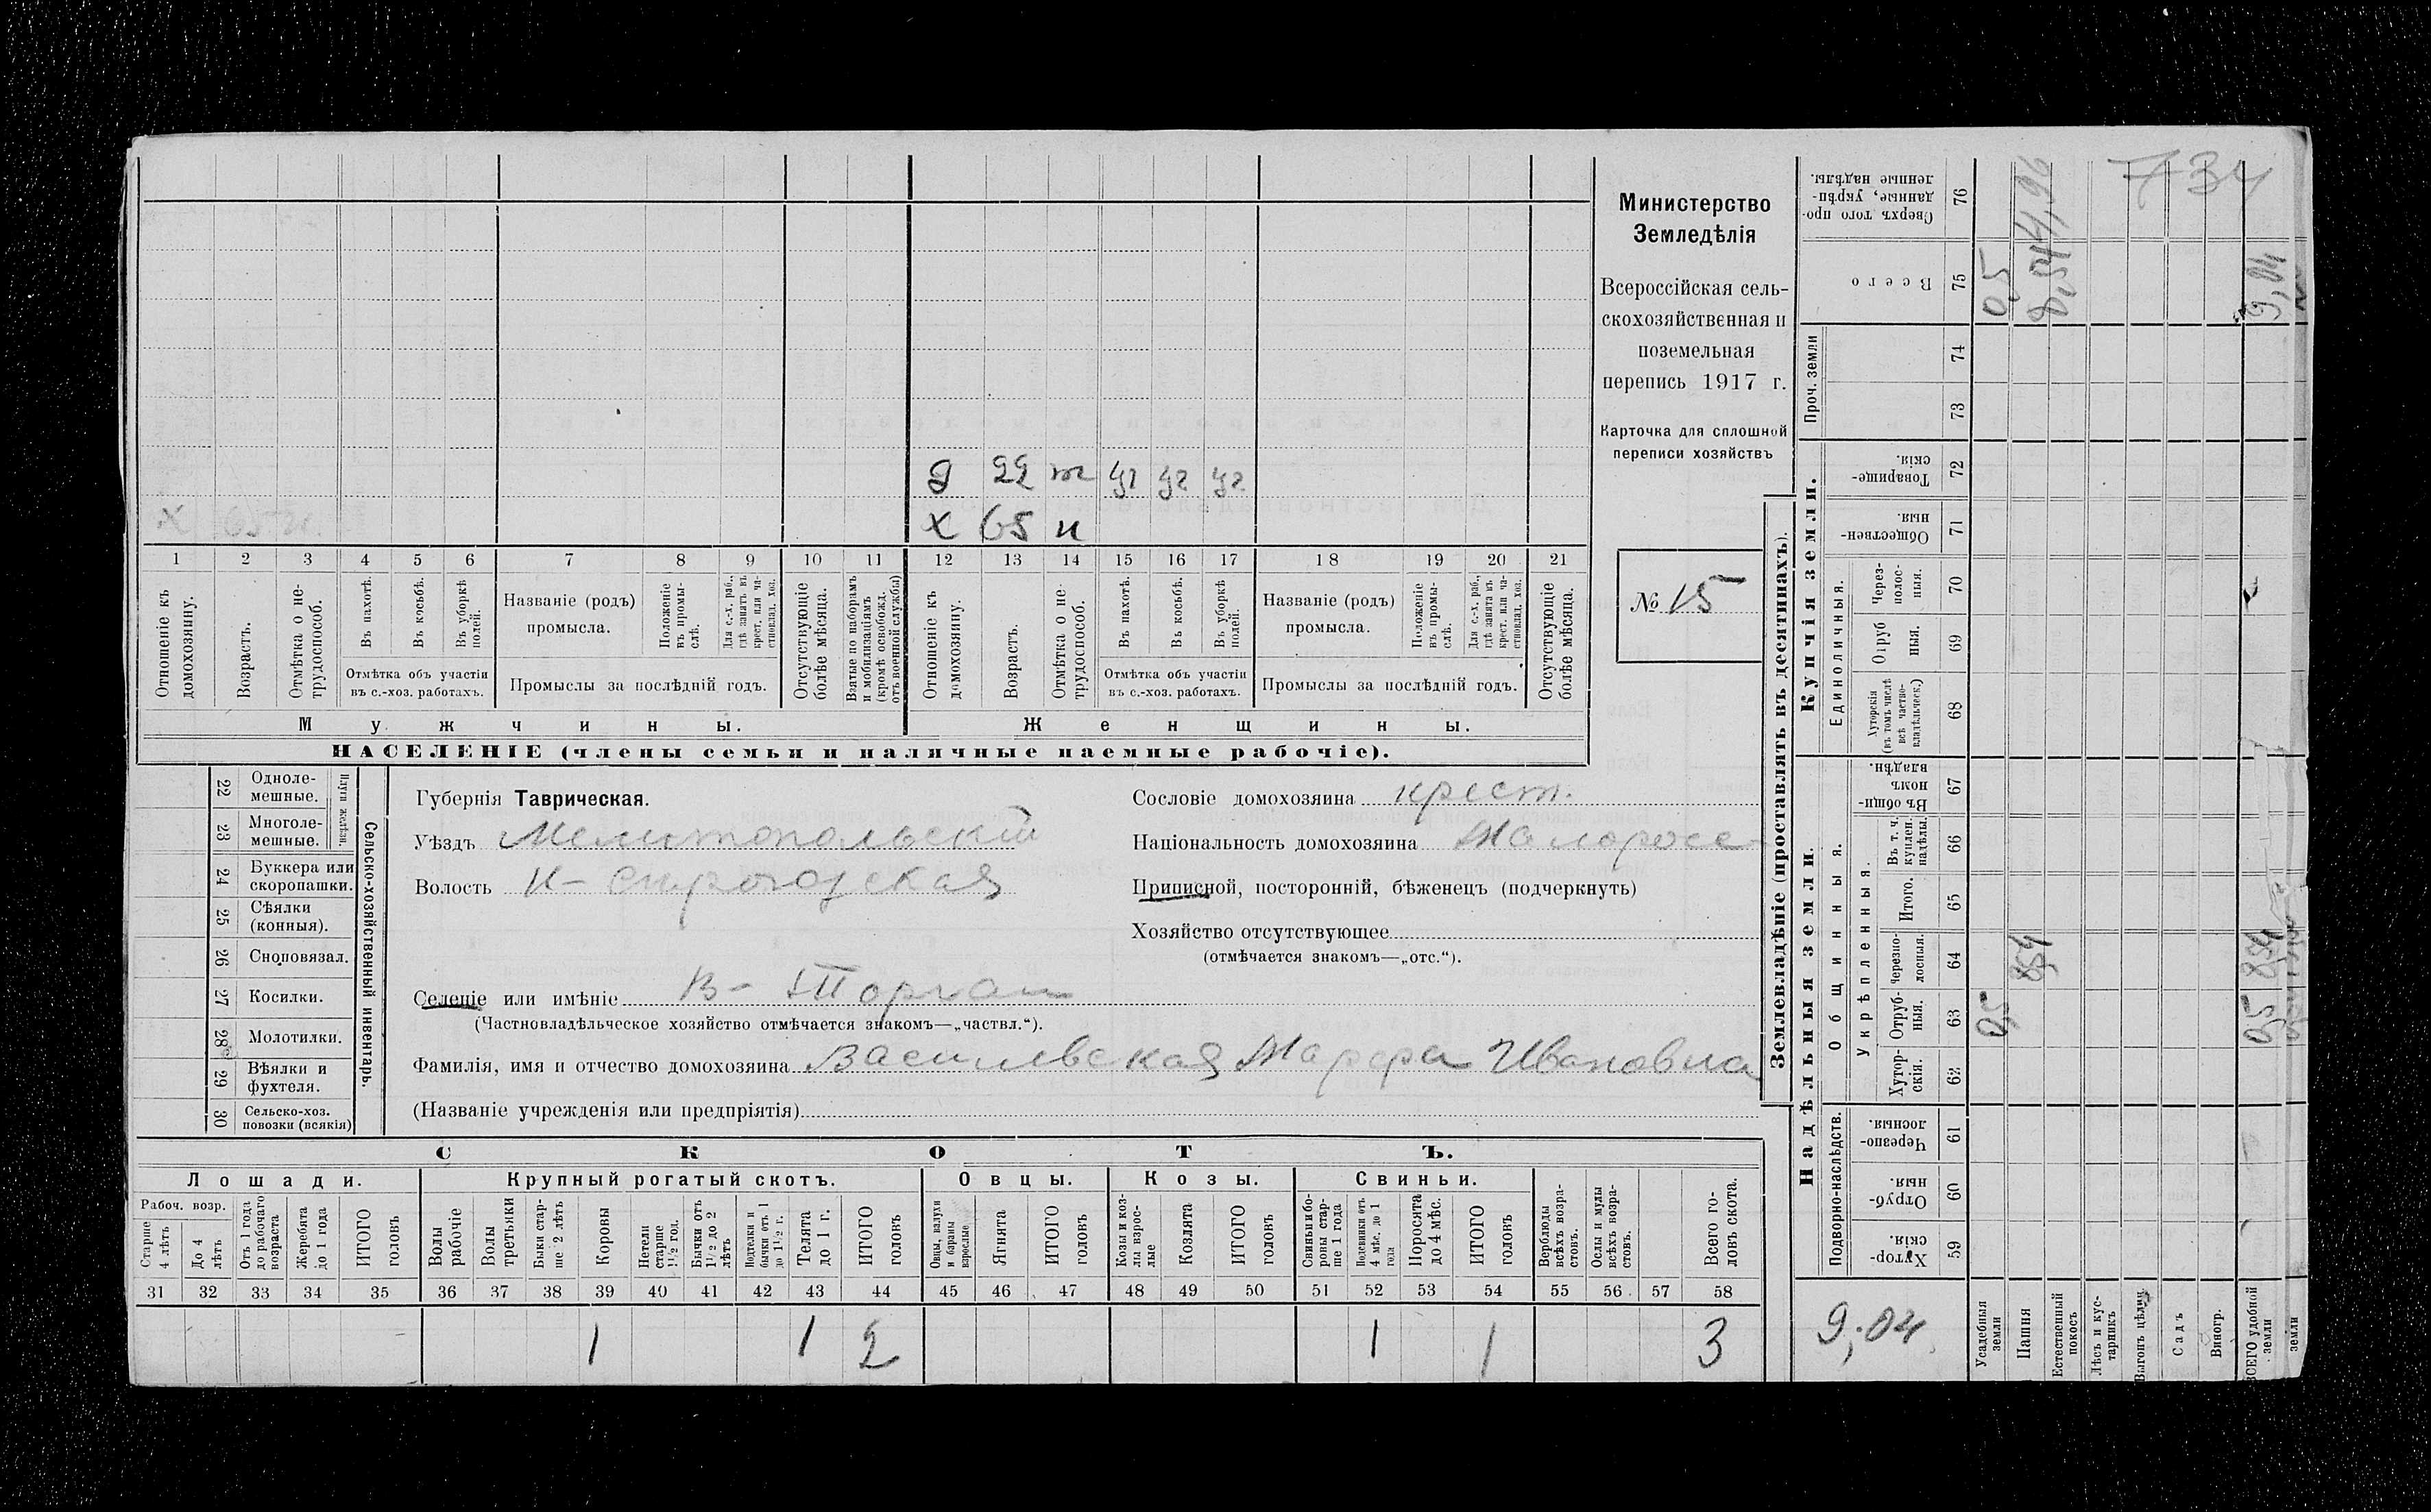 Министерство
Земледѣлія
Всероссійская сель-
скохозяйственная и
поземельная
перепись 1917 г.
Карточка для сплошной
переписи хозяйствъ
№ 15
734
д 22 т уг уг уг
х 65 н
х 65 н
1 2 3 4 5 6 7 8 9 10 11 12 13 14 15 16 17 18 19 20 21
Отношеніе къ домохозяину.
Возрастъ.
Отмѣтка о не-трудоспособ.
Въ пахотѣ.
Въ косьбѣ.
Въ уборкѣ полей.
Отмѣтка объ участіи
въ с.-хоз. работахъ.
Названіе (родъ)
промысла.
Положеніе въ промы-слѣ.
Для с.-х. раб., гдѣ занятъ въ крест. или ча-стновлад. хоз.
Промыслы за послѣдній годъ.
Отсутствующіе болѣе мѣсяца.
Взятые по наборамъ и мобилизаціямъ (кромѣ освобожд. отъ военной службы)
Отношеніе къ домохозяину.
Возрастъ.
Отмѣтка о не-трудоспособ.
Въ пахотѣ.
Въ косьбѣ.
Въ уборкѣ полей.
Отмѣтка объ участіи
въ с.-хоз. работахъ.
Названіе (родъ)
промысла.
Положеніе въ промы-слѣ.
Для с.-х. раб., гдѣ занята въ крест. или ча-стновлад. хоз.
Промыслы за послѣдній годъ.
Отсутствующіе болѣе мѣсяца.
Мужчины. Женщины.
НАСЕЛЕНІЕ (члены семьи и наличные наемные рабочіе).
Сельско-хозяйственный инвентарь.
Плуги желѣзн.
22 Одноле-мешные.
23 Многоле-мешные.
24 Буккера или скоропашки.
25 Сѣялки (конныя).
26 Сноповязал.
27 Косилки.
28 Молотилки.
29 Вѣялки и фухтеля.
30 Сельско-хоз. повозки (всякія)
Губернія Таврическая.
Уѣздъ Мелитопольскій
Волость Н-Сирогозская
Селеніе или имѣніе В-Торгаи
(Частновладѣльческое хозяйство отмѣчается знакомъ—„частвл.“).
Фамилія, имя и отчество домохозяина Василевская Марфа Ивановна
(Названіе учрежденія или предпріятія)
Сословіе домохозяина крест.
Національность домохозяина Малоросс
Приписной, посторонній, бѣженецъ (подчеркнуть)
Хозяйство отсутствующее
(отмѣчается знакомъ—„отс.“).
СКОТЪ.
Лошади. Крупный рогатый скотъ. Овцы. Козы. Свиньи.
Рабоч. возр.
Старше 4 лѣтъ
До 4 лѣтъ
Отъ 1 года до рабочаго возраста
Жеребята до 1 года
ИТОГО головъ
Волы рабочіе
Волы третьяки
Быки стар-ше 2 лѣтъ
Коровы
Нетели старше 1½ год.
Бычки отъ 1½ до 2 лѣтъ
Подтелки и бычки отъ 1 до 1½ г.
Телята до 1 г.
ИТОГО головъ
Овцы, валухи и бараны взрослые
Ягнята
ИТОГО головъ
Козы и коз-лы взрос-лые
Козлята
ИТОГО головъ
Свиньи и бо-ровы стар-ше 1 года
Подсвинки отъ 4 мѣс. до 1 года
Поросята до 4 мѣс.
ИТОГО головъ
Верблюды всѣхъ возра-стовъ.
Ослы и мулы всѣхъ возра-стовъ.
Всего го-ловъ скота.
31 32 33 34 35 36 37 38 39 40 41 42 43 44 45 46 47 48 49 50 51 52 53 54 55 56 57 58
1 1 2 1 1 3
Землевладѣніе (проставлять въ десятинахъ).
Надѣльныя земли.
Купчія земли.
Проч. земли
Подворно-наслѣдств.
Общинныя.
Укрѣпленныя.
Единоличныя.
Сверхъ того про-данные, укрѣп-ленные надѣлы. 76
Всего 75
74
73
Товарище-скія. 72
Обществен-ныя. 71
Через-полос-ныя. 70
Отруб-ныя. 69
Хуторскія (въ томъ числѣ всѣ частно-владѣльческ.) 68
Въ общи-номъ владѣн. 67
Въ т. ч. куплен. надѣлы. 66
Итого. 65
Черезпо-лосныя. 64
Отруб-ныя. 63
Хутор-скія. 62
Черезпо-лосныя. 61
Отруб-ныя. 60
Хутор-скія. 59
Усадебныя земли
Пашня
Естественный покосъ
Лѣсъ и кус-тарникъ
Выгонъ цѣлин.
Садъ
Виногр.
ВСЕГО удобной земли
земли
05
8,54
4,96
9,04
854
0,5
0,5
854
9,04